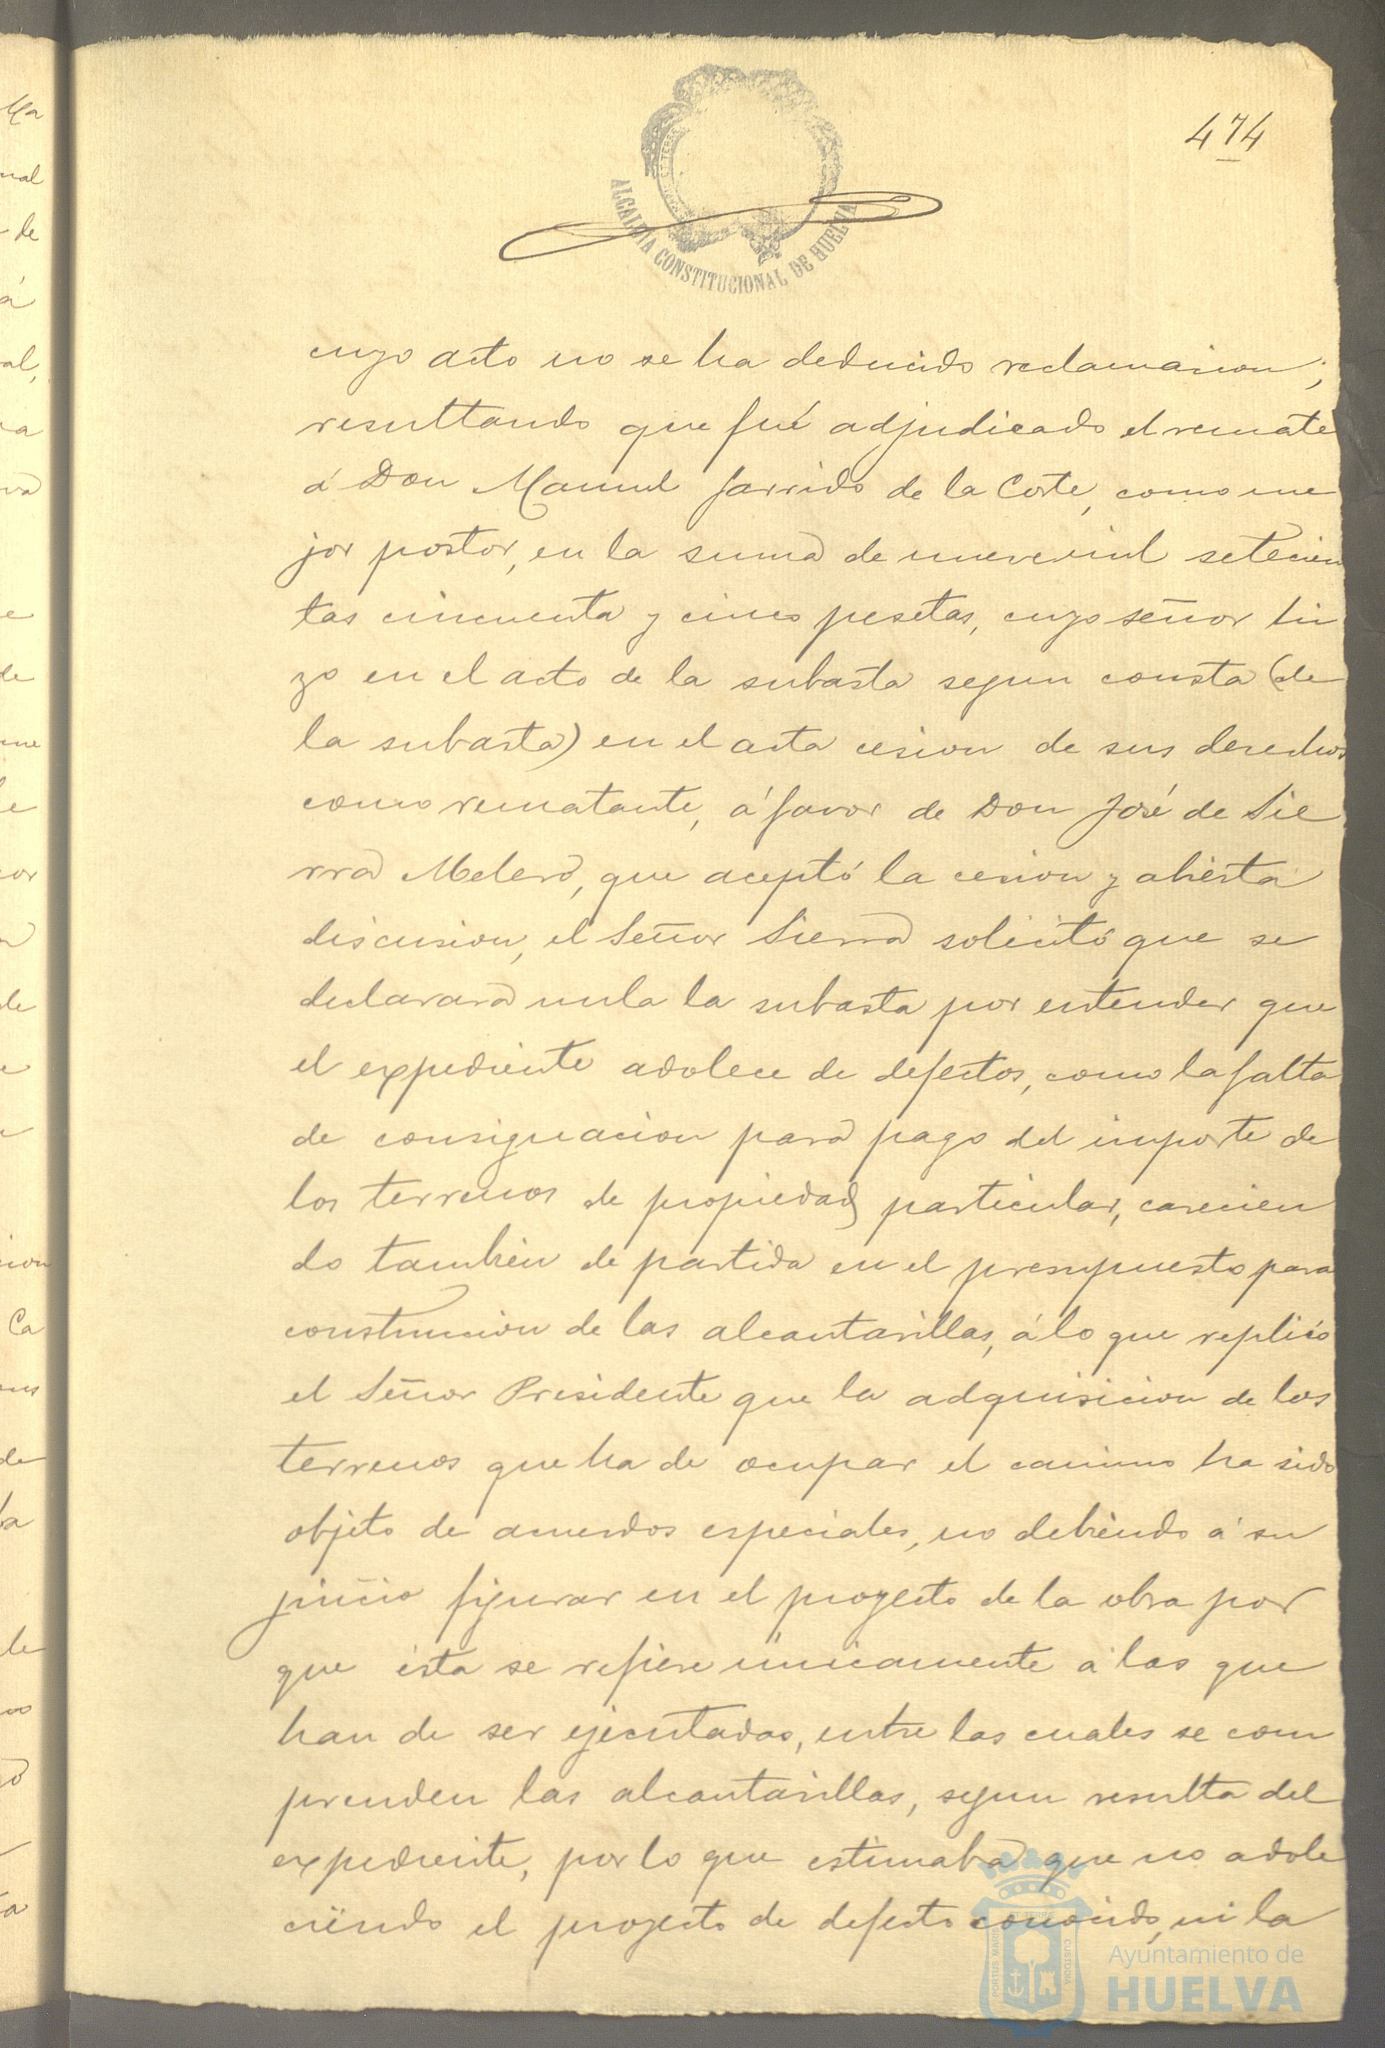 474
ALCALDIA CONSTITUCIONAL DE HUELVA
cuyo acto no se ha deducido reclamacion;
resultando que fué adjudicado el remate
á Don Manuel Garrido de la Corte, como me
jor postor, en la suma de nueve mil setecien
tas cincuenta y cinco pesetas, cuyo señor hi
zo en el acto de la subasta segun consta (de
la subasta) en el acta cesion de sus derechos
como rematante, á favor de Don José de Sie
rra Mélero, que aceptó la cesion y abierta
discusion, el Señor Sierra solicitó que se
declarara nula la subasta por entender que
el expediente adolece de defectos, como la falta
de consignacion para pago del importe de
los terrenos de propiedad particular, carecien
do tambien de partida en el presupuesto para
construccion de las alcantarillas, á lo que replicó
el Señor Presidente que la adquisicion de los
terrenos que ha de ocupar el camino ha sido
objeto de acuerdos especiales, no debiendo á su
juicio figurar en el proyecto de la obra por
que ésta se refiere únicamente á las que
han de ser ejecutadas, entre las cuales se com
prenden las alcantarillas, segun resulta del
expediente, por lo que estimaba que no adole
ciendo el proyecto de defecto conocido, ni la
Ayuntamiento de
HUELVA
PORTUS MARIS
CUSTODIA